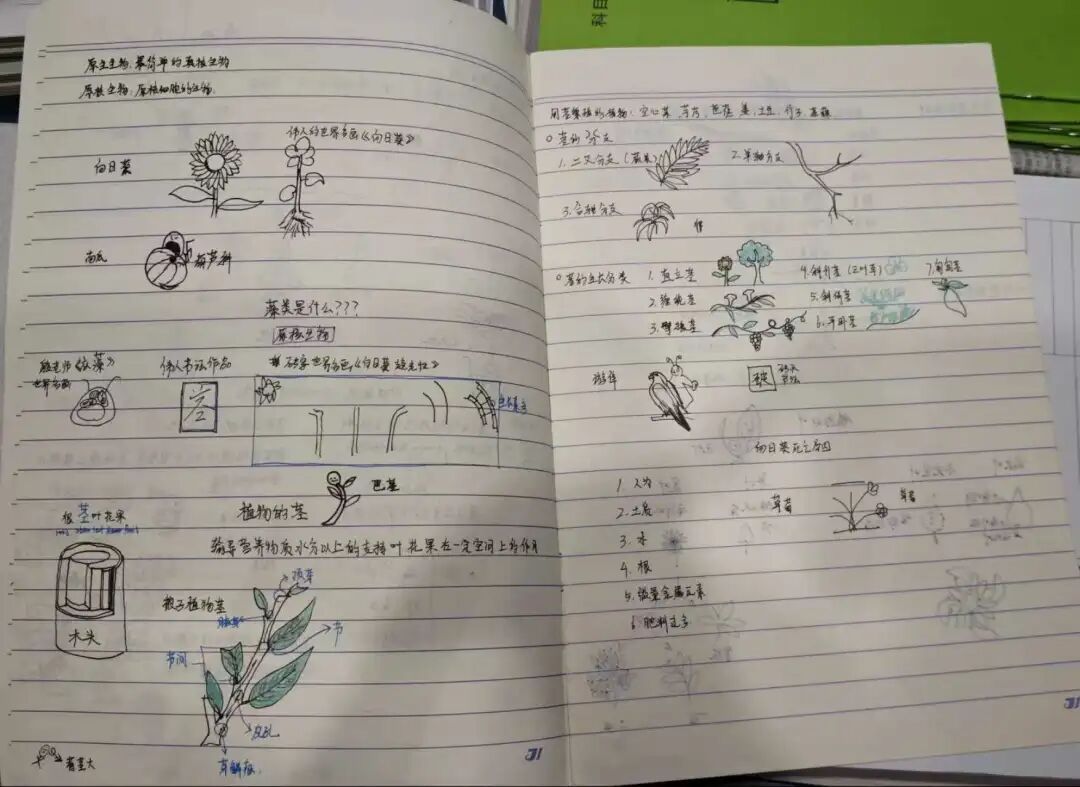 科目
原生生物：最简单的真核生物
原核生物：原核细胞的生物
伟人的世界名画《向日葵》
向日葵
南瓜
葫芦科
藻类是什么???
原核生物
世界名画
伟人书法作品
植物的茎
芭蕉
根茎叶花果
输导营养物质水分以上的支持叶花果在一定空间上的作用
木头
被子植物茎
顶芽
节
节间
皮孔
芽鳞痕
用茎繁殖的植物：空心菜、芋头、芭蕉、姜、土豆、竹子、菖蒲
茎的分支
1.二叉分支（蕨类）
2.单轴分支
3.合轴分支
茎的生长分类
1.直立茎
2.缠绕茎
3.攀援茎
4.斜升茎（三叶草）
5.斜倚茎
6.平卧茎
7.匍匐茎
向日葵死亡原因
1.人为
2.土质
3.水
4.根
5.微量金属元素
6.肥料过多
草莓
草莓